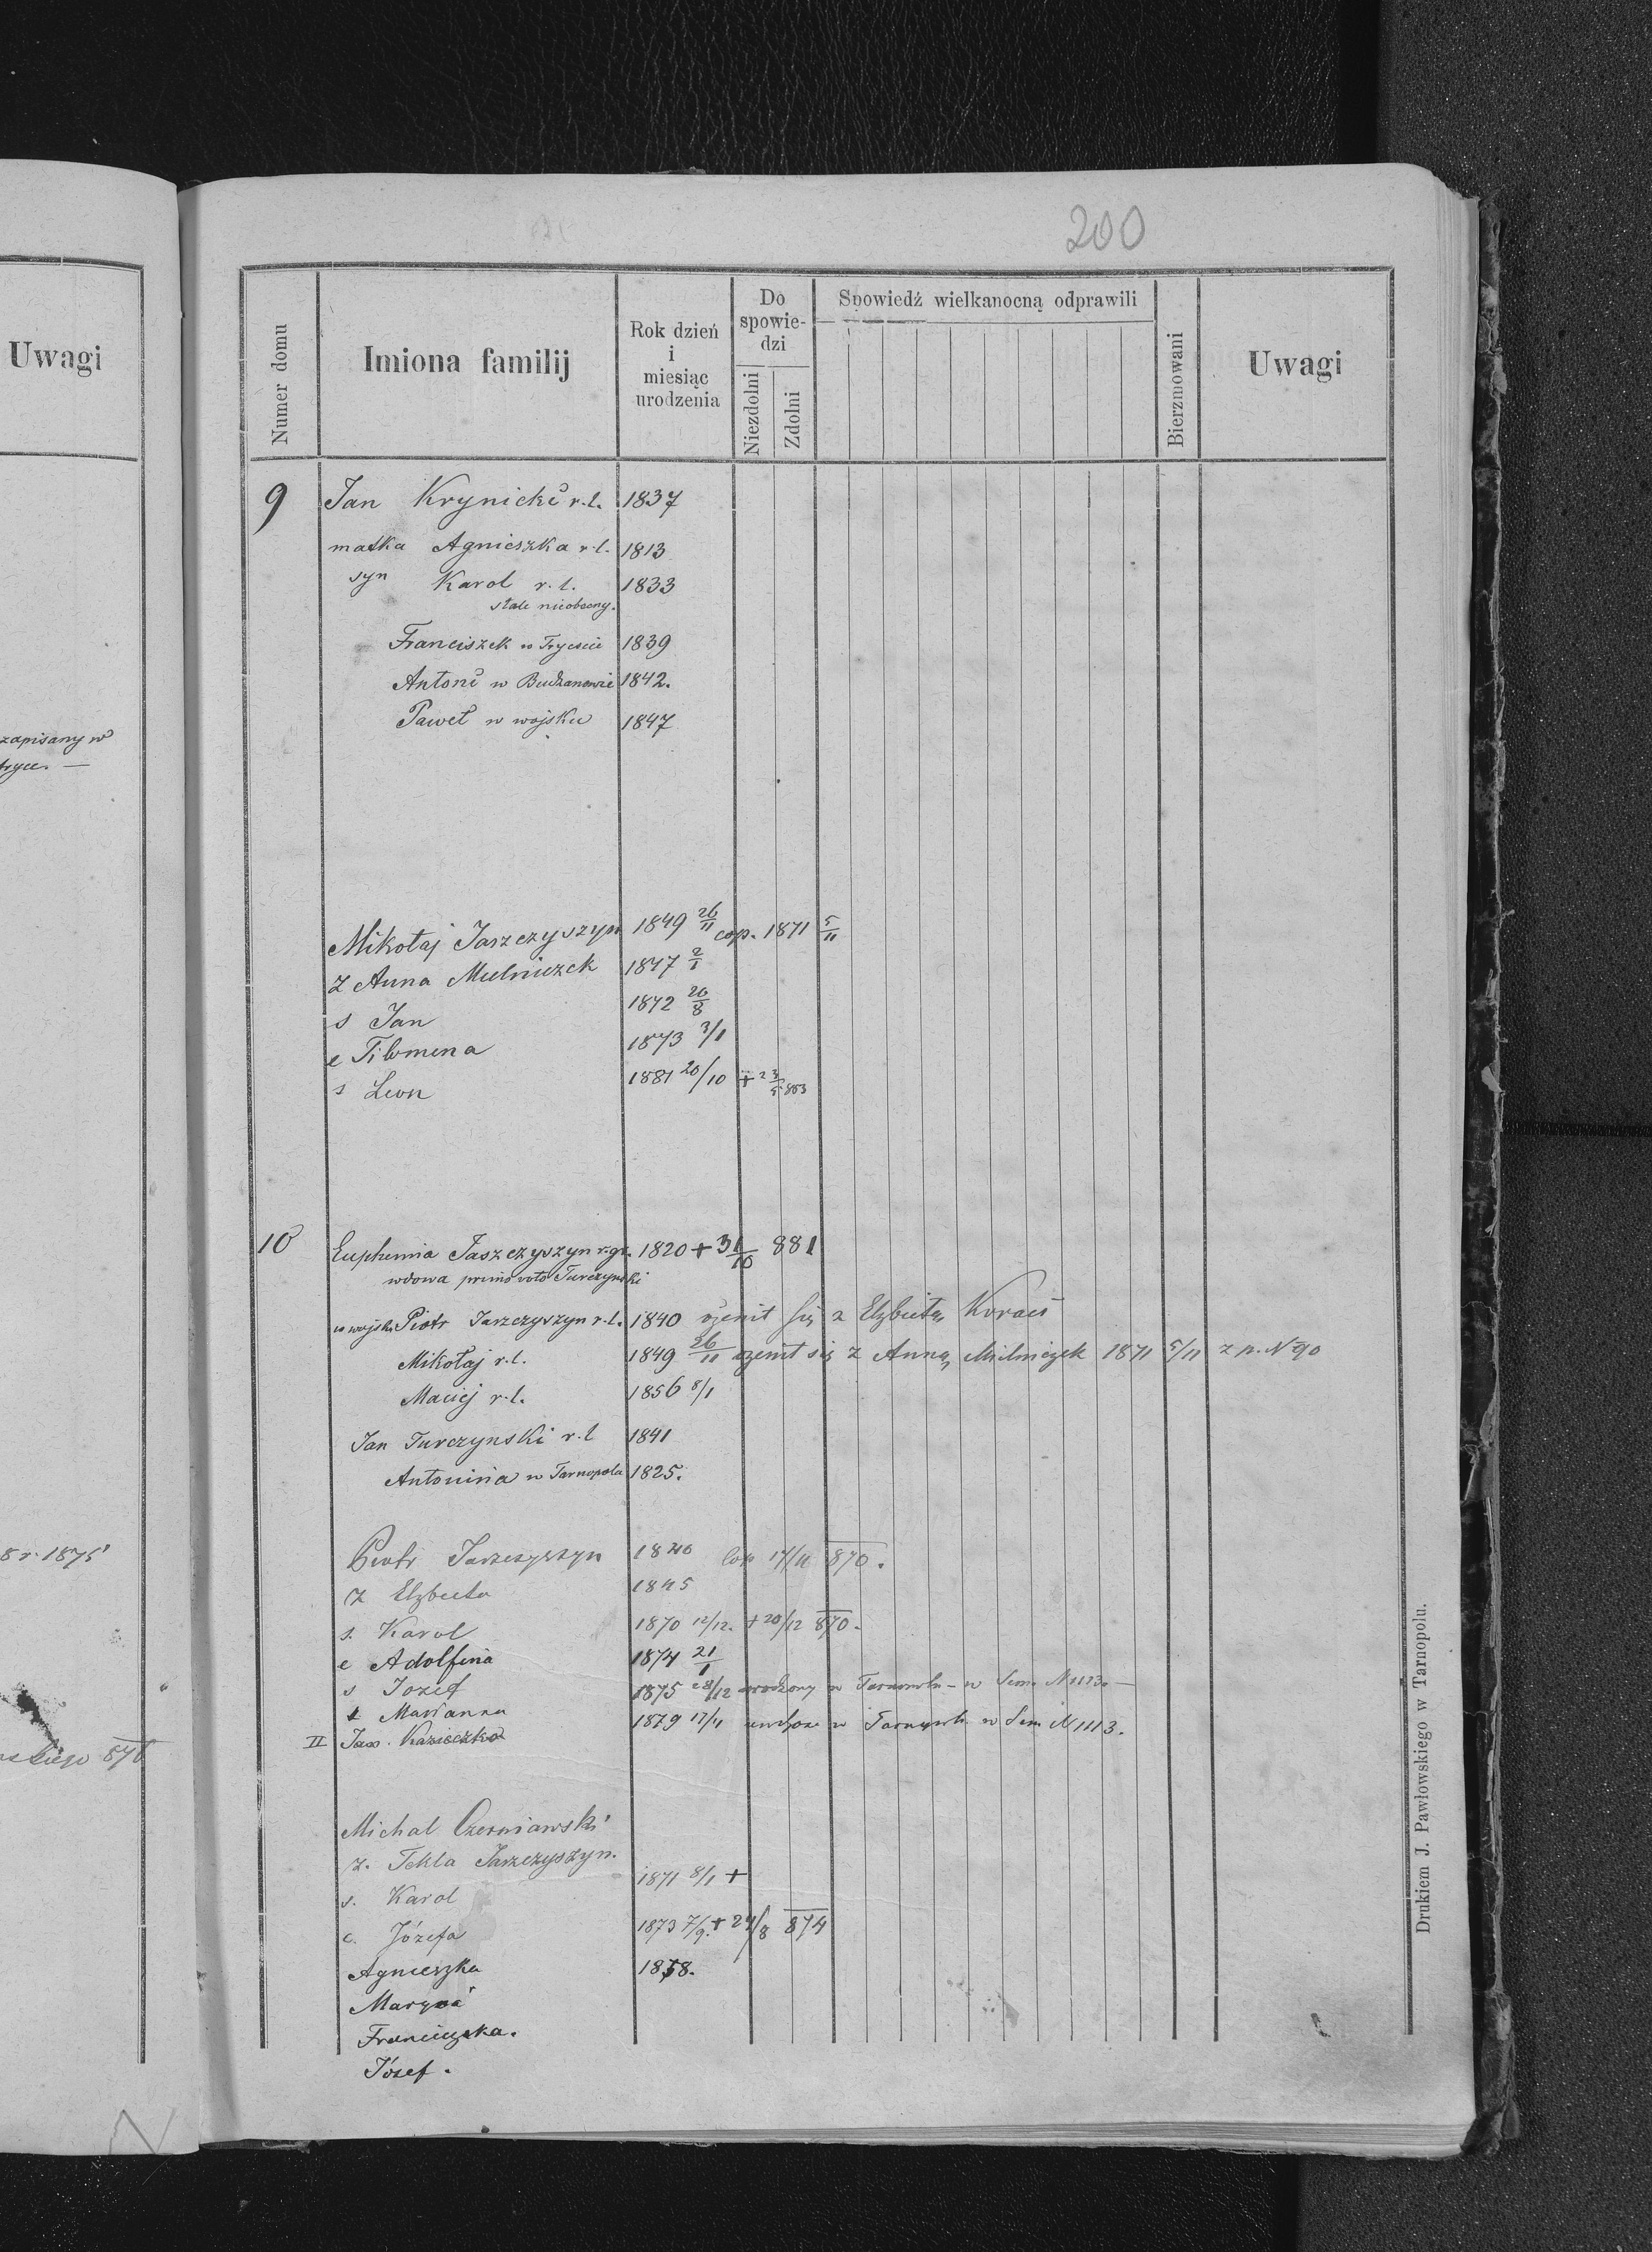 200
Uwagi
zapisany w
8 r. 1875
Numer domu
Imiona familij
Rok dzień
i
miesiąc
urodzenia
Do
spowie-
dzi
Niezdolni
Zdolni
Spowiedź wielkanocną odprawili
Bierzmowani
Uwagi
9 Jan Krynicki r.l. 1837
matka Agnieszka r.l. 1813
syn Karol r.l. 1833
stale nieobecny.
Franciszek w Tryeście 1839
Antoni w Budzanowie 1842.
Paweł w wojsku 1847
Mikołaj Jaszczyszyn 1849 26/11 cop. 1871 5/11
z Anna Mielniczek 1847 2/1
s Jan 1872 26/8
c Filomena 1873 3/1
s Leon 1881 20/10 + 23/5 883
10 Euphemia Jaszczyszyn r.gr. 1820 + 31/10 881
wdowa primo voto Turczynski
w wojsk. Piotr Jaszczyszyn r.l. 1840 ożenił się z Elżbietą
Mikołaj r.l. 1849 26/11 ożenił się z Anną Mielniczek 1871 5/11 z p. N 90
Maciej r.l. 1856 8/1
Jan Turczynski r.l 1841
Antonina w Tarnopolu 1825.
Piotr Jaszczyszyn 1840 cop 17/11 870.
z Elżbieta 1845
s. Karol 1870 12/12. + 20/12 870.
c Adolfina 1874 21/1
s Jozef 1875 28/12 urodzony w Tarnopolu - w N 1113. -
Marianna 1879 17/11 w Tarnopolu w N 1113.
II Jan.
Michal Czerniawski
z. Tekla Jaszczyszyn.
s. Karol 1871 8/1 +
c. Józefa 1873 7/9. + 24/8 874
Agnieszka 1858.
Maryna
Franciszka.
Józef.
Drukiem J. Pawłowskiego w Tarnopolu.